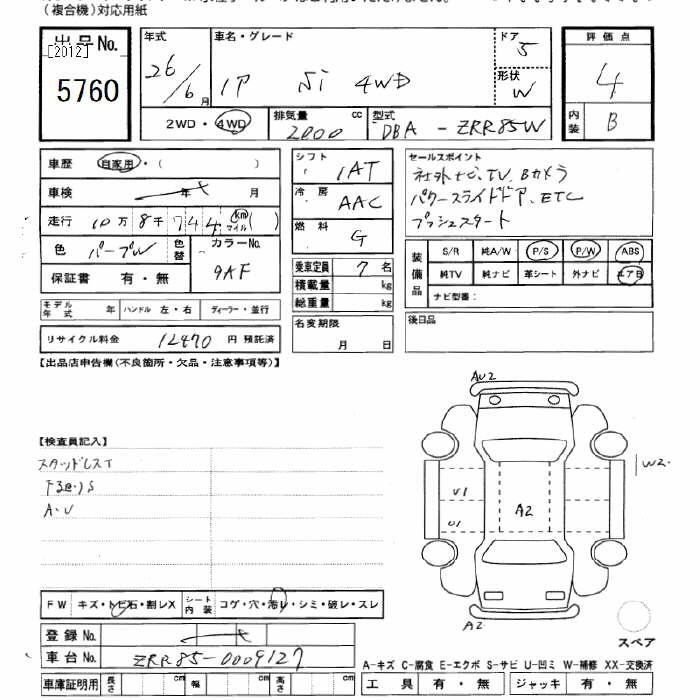 (複合機)対応用紙
出品No. 年式 車名・グレード ドア 5 評価点
[2012] 26/6月 Si 4WD 形状 W 4
5760 2WD・4WD 排気量 2000 cc 型式 DBA - ZRR85W 内装 B
車歴 自家用・( ) シフト IAT セールスポイント
車検 年 月 冷房 AAC 社外ナビ、TV、Bカメラ
走行 10万8千744 km マイル ( ) パワースライドドア、ETC
プッシュスタート
燃料 G
色 パープル 色替 カラーNo. 9AF
保証書 有・無
装備品 S/R 純A/W P/S P/W ABS
純TV 純ナビ 革シート 外ナビ エアB
ナビ型番:
乗車定員 7 名
積載量 kg
総重量 kg
モデル年式 年 ハンドル 左・右 ディーラー・並行
名変期限 月 日
後日品
リサイクル料金 12470 円 預託済
【出品店申告欄(不良箇所・欠品・注意事項等)】
AU2
【検査員記入】
スタッドレスT
W2
下回りS
A・U
U1
U1
A2
FW キズ・トビ石・割レX シート内装 コゲ・穴・汚レ・シミ・破レ・スレ
A2
スペア
登録No.
車台No. ZRR85-0009127
A-キズ C-腐食 E-エクボ S-サビ U-凹ミ W-補修 XX-交換済
車庫証明用 長さ cm 幅 cm 高さ cm 工具 有・無 ジャッキ 有・無